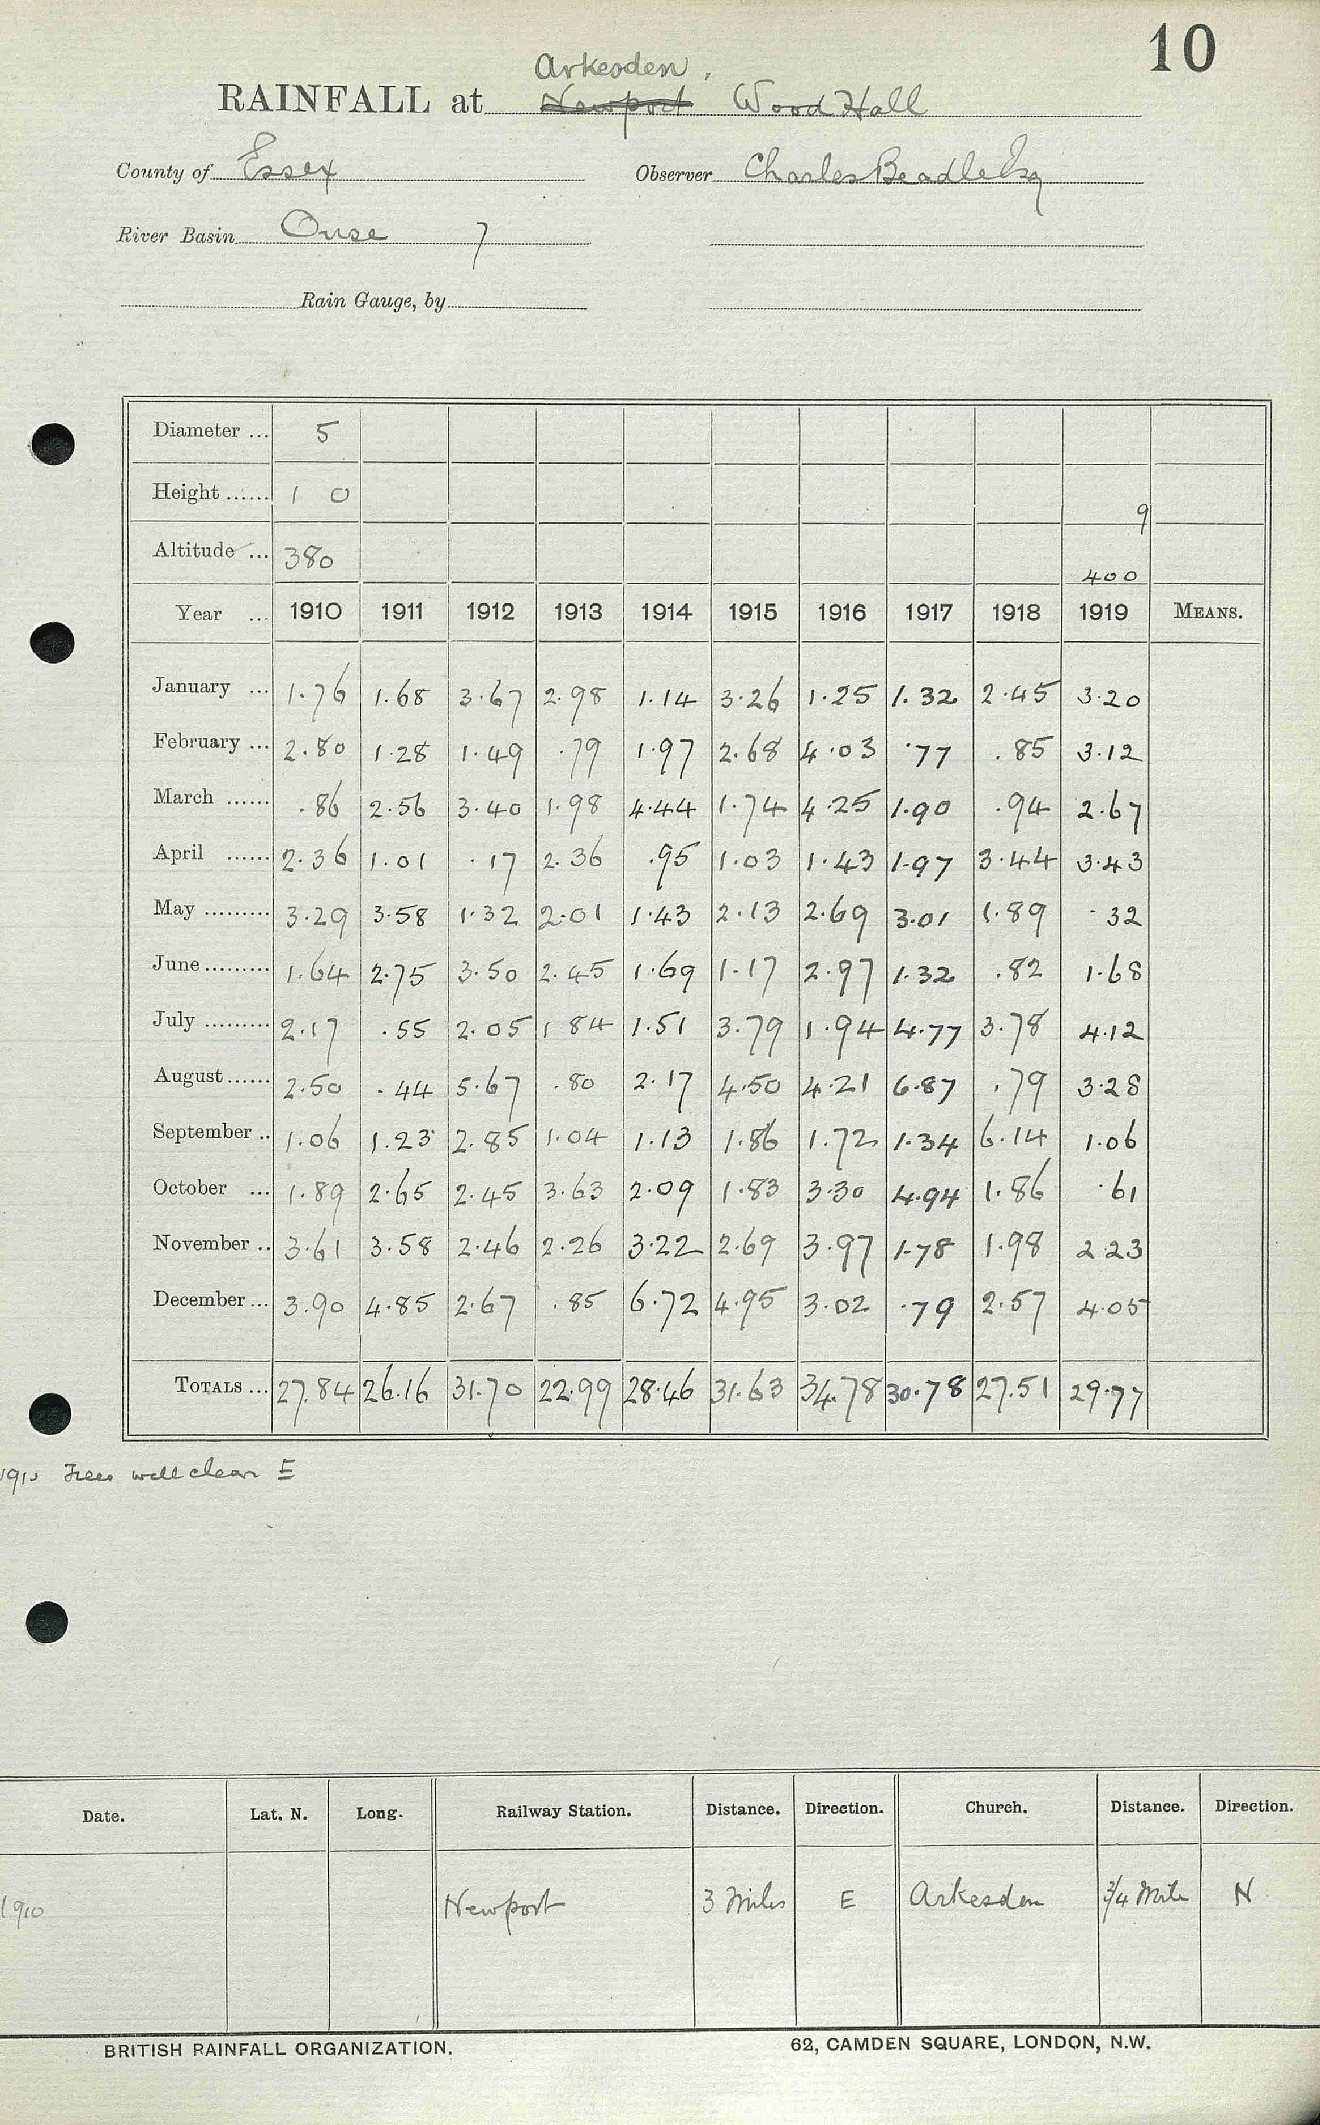 10
Arkesden,
RAINFALL at Newport Wood Hall
County of Essex Observer Charles Beadle Esq
River Basin Ouse 7
Rain Gauge, by
Diameter ... 5
Height ...... 1 0 9
Altitude ... 380 400
Year ... 1910 1911 1912 1913 1914 1915 1916 1917 1918 1919 MEANS.
January ... 1.76 1.68 3.67 2.98 1.14 3.26 1.25 1.32 2.45 3.20
February ... 2.80 1.28 1.49 .79 1.97 2.68 4.03 .77 .85 3.12
March ...... .86 2.56 3.40 1.98 4.44 1.74 4.25 1.90 .94 2.67
April ...... 2.36 1.01 .17 2.36 .95 1.03 1.43 1.97 3.44 3.43
May ......... 3.29 3.58 1.32 2.01 1.43 2.13 2.69 3.01 1.89 .32
June ......... 1.64 2.75 3.50 2.45 1.69 1.17 2.97 1.32 .82 1.68
July ......... 2.17 .55 2.05 1 84 1.51 3.79 1.94 4.77 3.78 4.12
August ...... 2.50 .44 5.67 .80 2.17 4.50 4.21 6.87 .79 3.28
September .. 1.06 1.23 2.85 1.04 1.13 1.86 1.72 1.34 6.14 1.06
October ... 1.89 2.65 2.45 3.63 2.09 1.83 3.30 4.94 1.86 .61
November .. 3.61 3.58 2.46 2.26 3.22 2.69 3.97 1.78 1.98 2.23
December ... 3.90 4.85 2.67 .85 6.72 4.95 3.02 .79 2.57 4.05
TOTALS ... 27.84 26.16 31.70 22.99 28.46 31.63 34.78 30.78 27.51 29.77
Trees well clear E
Date. Lat. N. Long. Railway Station. Distance. Direction. Church. Distance. Direction.
1910 Newport 3 Miles E Arkesden 3/4 Mile N
BRITISH RAINFALL ORGANIZATION. 62, CAMDEN SQUARE, LONDON, N.W.